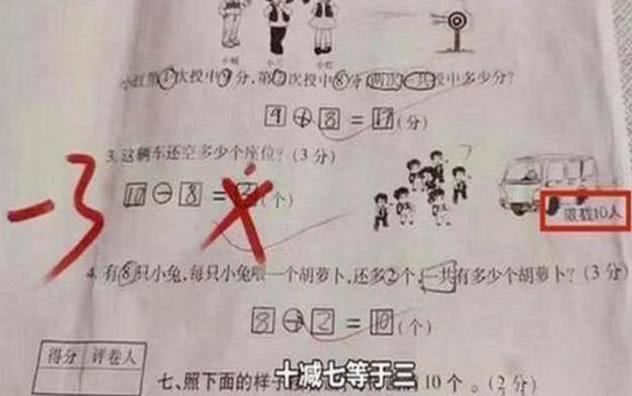 小红第①次投中⑨分,第②次投中⑧分,两次一共投中多少分?
9 + 8 = 17 (分)
3.这辆车还空多少个座位? (3分)
10 - 8 = 2 (个)
7
限载10人
-3
4.有8只小兔,每只小兔喂一个胡萝卜,还多2个,一共有多少个胡萝卜? (3分)
8 + 2 = 10 (个)
得分 评卷人
十减七等于三
七、照下面的样子
10个。